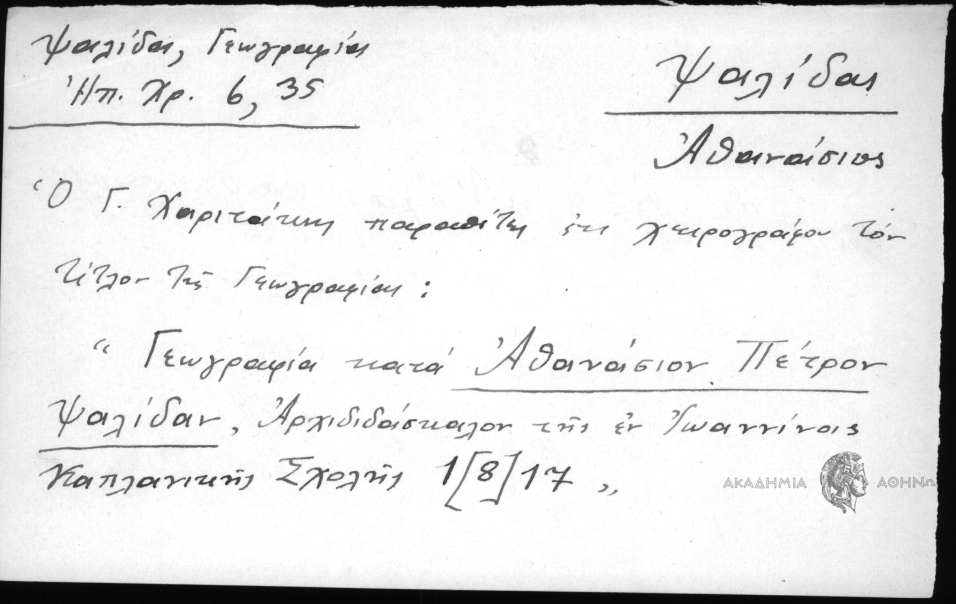 Ψαλίδας, Γεωγραφίας
Ἠπ. Χρ. 6, 35
Ψαλίδας
Ἀθανάσιος
Ὁ Γ. Χαριτάκης παραθέτει ἐκ χειρογράφου τὸν
τίτλον τῆς Γεωγραφίας :
“ Γεωγραφία κατά Ἀθανάσιον Πέτρον
Ψαλίδαν, Ἀρχιδιδάσκαλον τῆς ἐν Ἰωαννίνοις
Καπλανικῆς Σχολῆς 1[8]17 „
ΑΚΑΔΗΜΙΑ ΑΘΗΝΩ